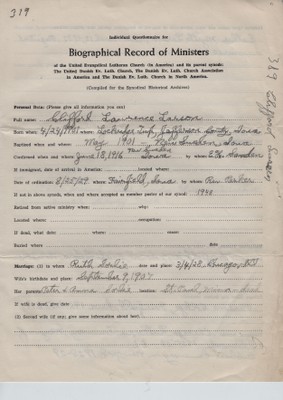 319
Individual Questionnaire for
Biographical Record of Ministers
of the United Evangelical Lutheran Church (in America) and its parent synods:
The United Danish Ev. Luth. Church, The Danish Ev. Luth. Church Association
in America and The Danish Ev. Luth. Church in North America.
(Compiled for the Synodical Historical Archives)
Personal Data: (Please give all information you can)
Full name: Clifford Lawrence Larson
Born when: 4/24/1901 where: Twp, Jefferson County, Iowa
Baptized when and where: May 1901 — New Sweden, Iowa
Confirmed when and where June 18, 1916 New Sweden Iowa by whom:
If immigrated, date of arrival in America: located where:
Date of ordination: 8/25/29 where Fairfield, Iowa by whom: Rev
If not in above synods, when and where accepted as member pastor of our synod: 1940
Retired from active ministry when: why:
Located where: occupation:
If dead, what date: where: cause:
Buried where date
Marriage: (1) to whom Ruth date and place 3/4/28
Wife's birthdate and place: September 9, 1907
Her parents: Peter & Anna location: St. Paul, Minn - dead
If wife is dead, give date
(2) Second wife (if any; give some information about her)
319 Clifford Larson